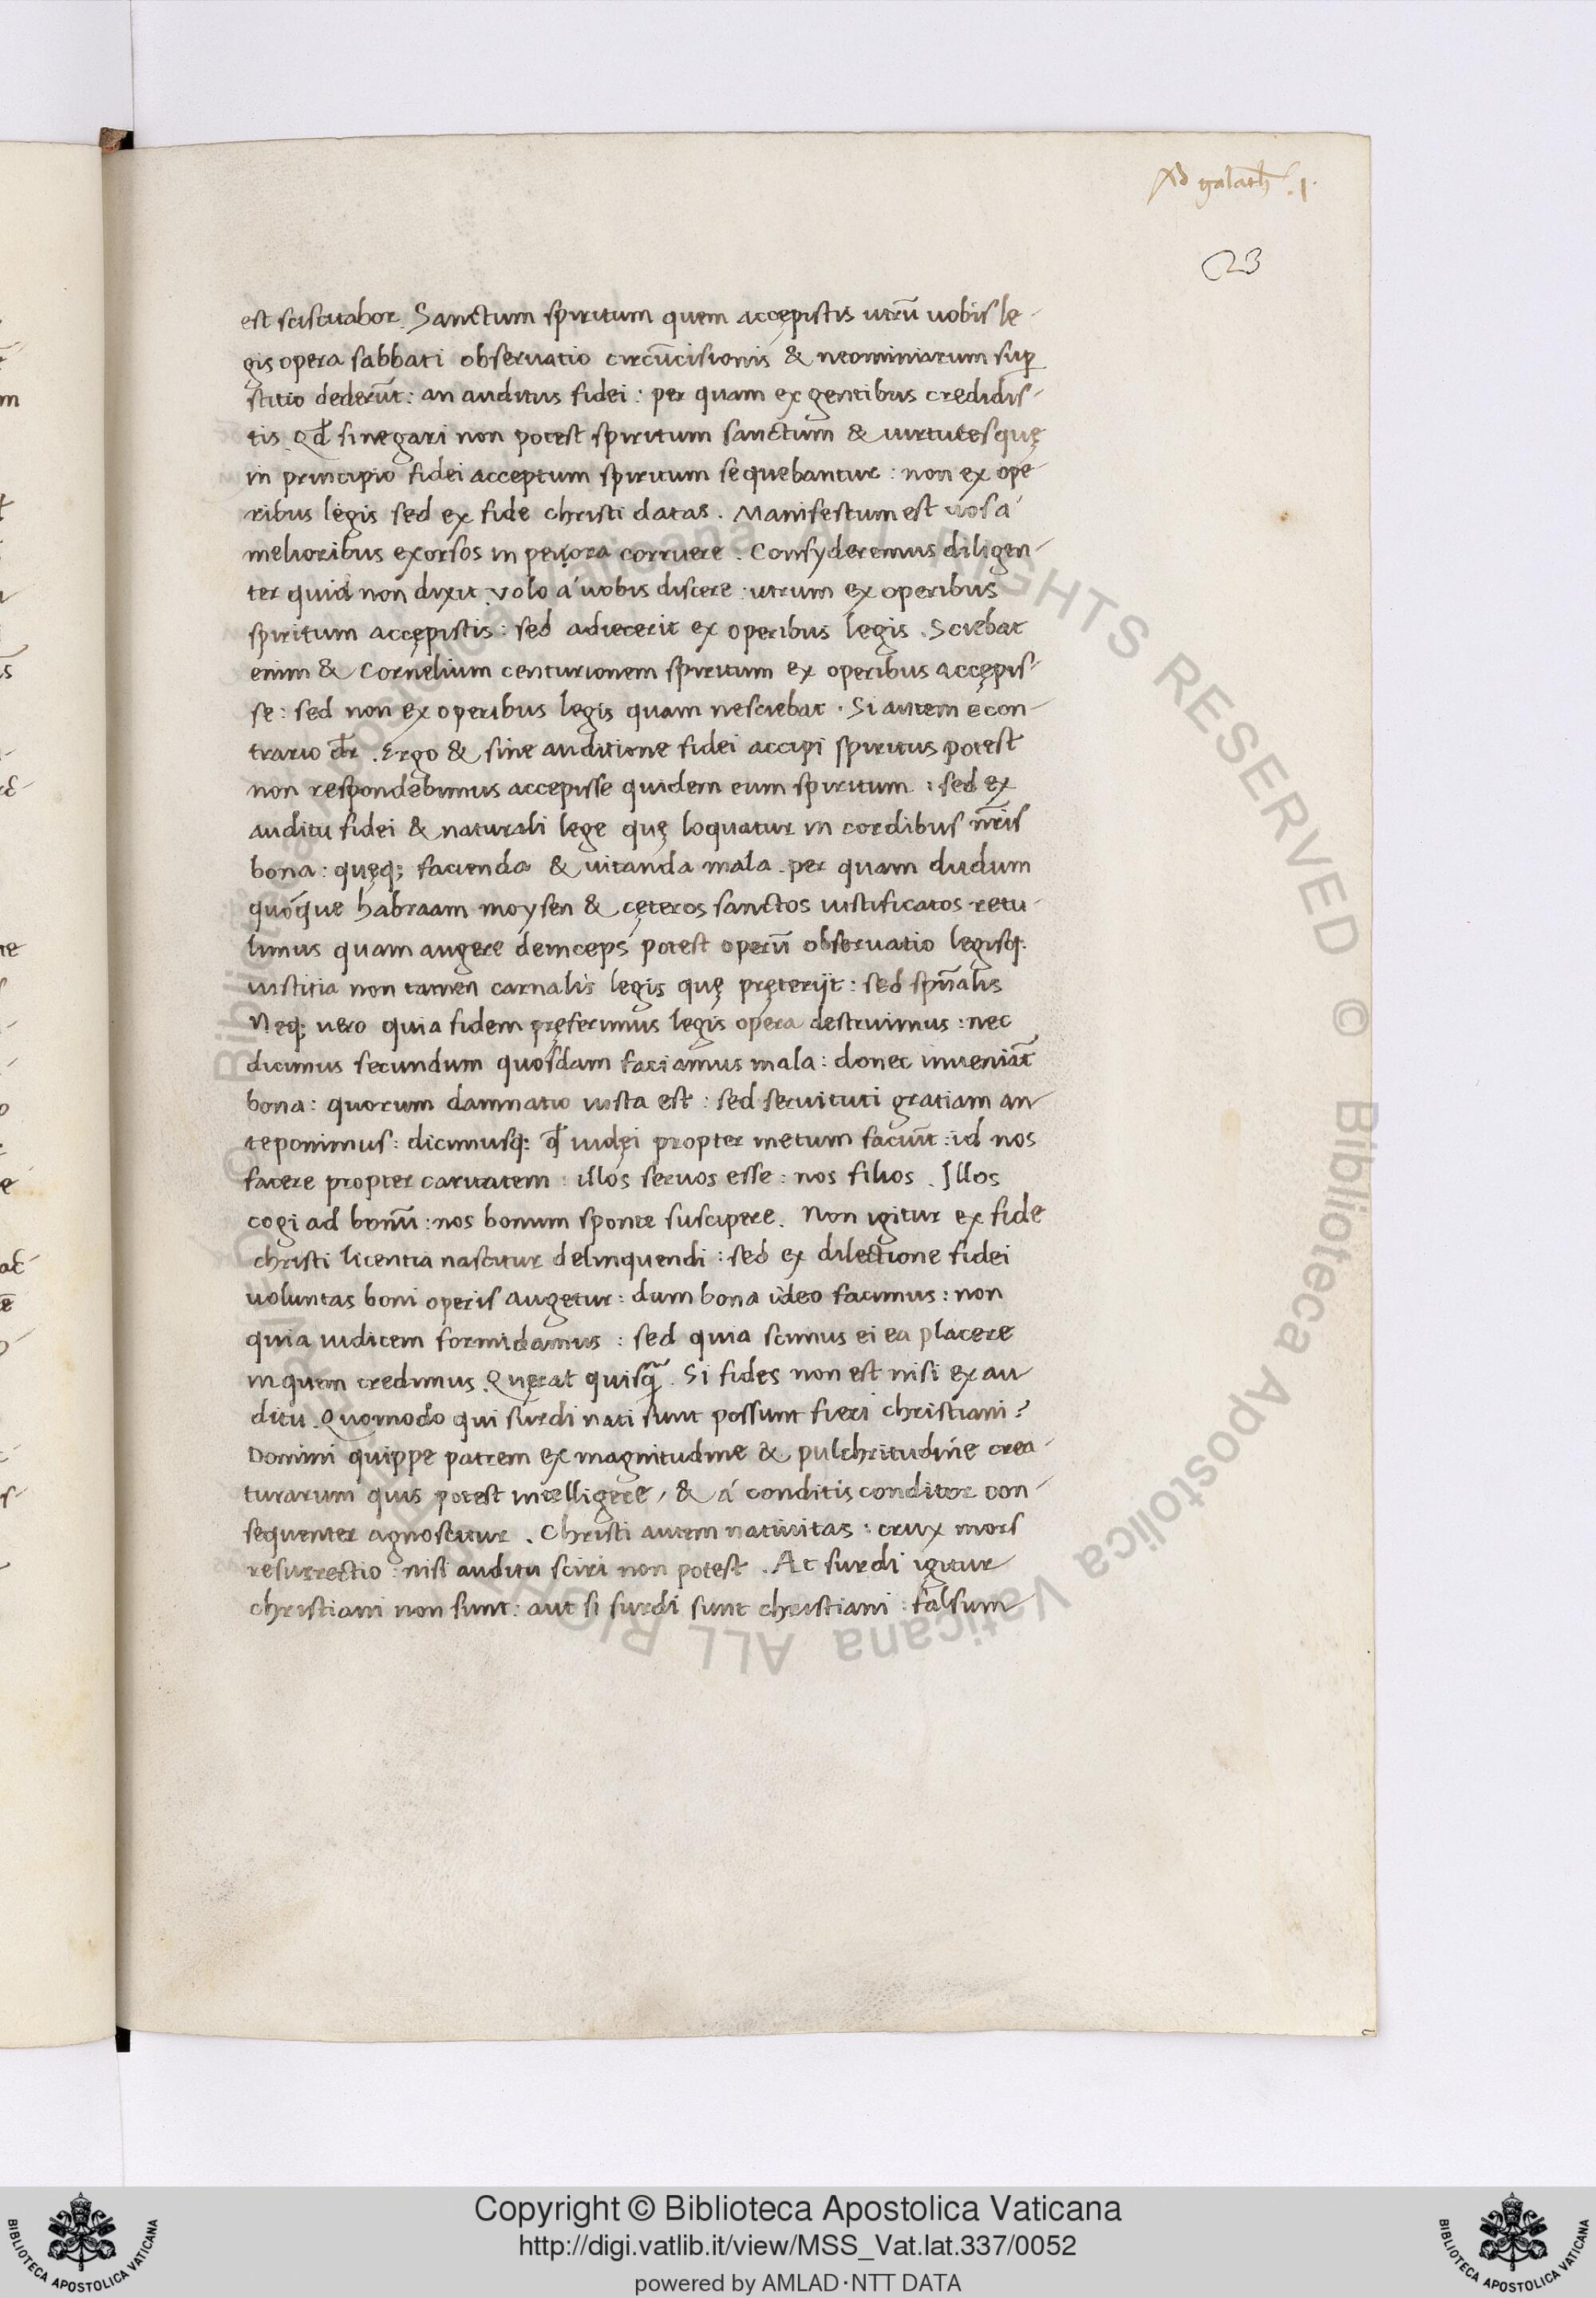 Ad galath .1.
23
est sciscitabor. Sanctum spiritum quem accępistis utrū uobis le-
gis opera sabbati obseruatio circūcisionis & neominiarum sup
stitio dederūt: an auditus fidei: per quam ex gentibus credidis-
tis. Qđ si negari non potest spiritum sanctum & uirtutes quę
in principio fidei acceptum spiritum sequebantur: non ex ope-
ribus legis sed ex fide christi datas. Manifestum est uos á
melioribus exorsos in peiora corruere. Consyderemus diligen-
ter quid non dixit. volo á uobis discere: utrum ex operibus
spiritum accępistis: sed adiecerit ex operibus legis. Sciebat
enim & Cornelium centurionem spiritum ex operibus accępis-
se: sed non ex operibus legis quam nesciebat. Si autem econ-
trario dr̄. Ergo & sine auditione fidei accipi spiritus potest
non respondebimus accepisse quidem eum spiritum: sed ex
auditu fidei & naturali lege quę loquatur in cordibus nr̄is
bona: quęq; facienda & uitanda mala. per quam dudum
quóque habraam moysen & cęteros sanctos iustificatos retu-
limus quam augere deinceps potest operū obseruatio legisq;
iustitia non tamen carnalis legis quę pręteriit: sed spūalis
Neq; uero quia fidem pręferimus legis opera destruimus: nec
dicimus secundum quosdam faciamus mala: donec inueniāt
bona: quorum damnatio iusta est: sed seruituti gratiam an
teponimus: dicimusq; qđ iudęi propter metum faciūt: id nos
facere propter caritatem: illos seruos esse: nos filios. Illos
cogi ad bonū: nos bonum sponte suscipere. Non igitur ex fide
christi licentia nascitur delinquendi: sed ex dilectione fidei
uoluntas boni operis augetur: dum bona ideo facimus: non
quia iudicem formidamus: sed quia scimus ei ea placere
in quem credimus. Quęrat quisq̄. Si fides non est nisi ex au
ditu. Quomodo qui surdi nati sunt possunt fieri christiani?
Domini quippe patrem ex magnitudine & pulchritudine crea-
turarum quis potest intelligere, & á conditis conditor con-
sequenter agnoscitur. Christi autem natiuitas: crux mors
resurrectio: nisi auditu sciri non potest. At surdi igitur
christiani non sunt: aut si surdi sunt christiani: falsum
© Biblioteca Apostolica Vaticana ALL RIGHTS RESERVED
Copyright © Biblioteca Apostolica Vaticana
http://digi.vatlib.it/view/MSS_Vat.lat.337/0052
powered by AMLAD·NTT DATA
BIBLIOTECA APOSTOLICA VATICANA
BIBLIOTECA APOSTOLICA VATICANA